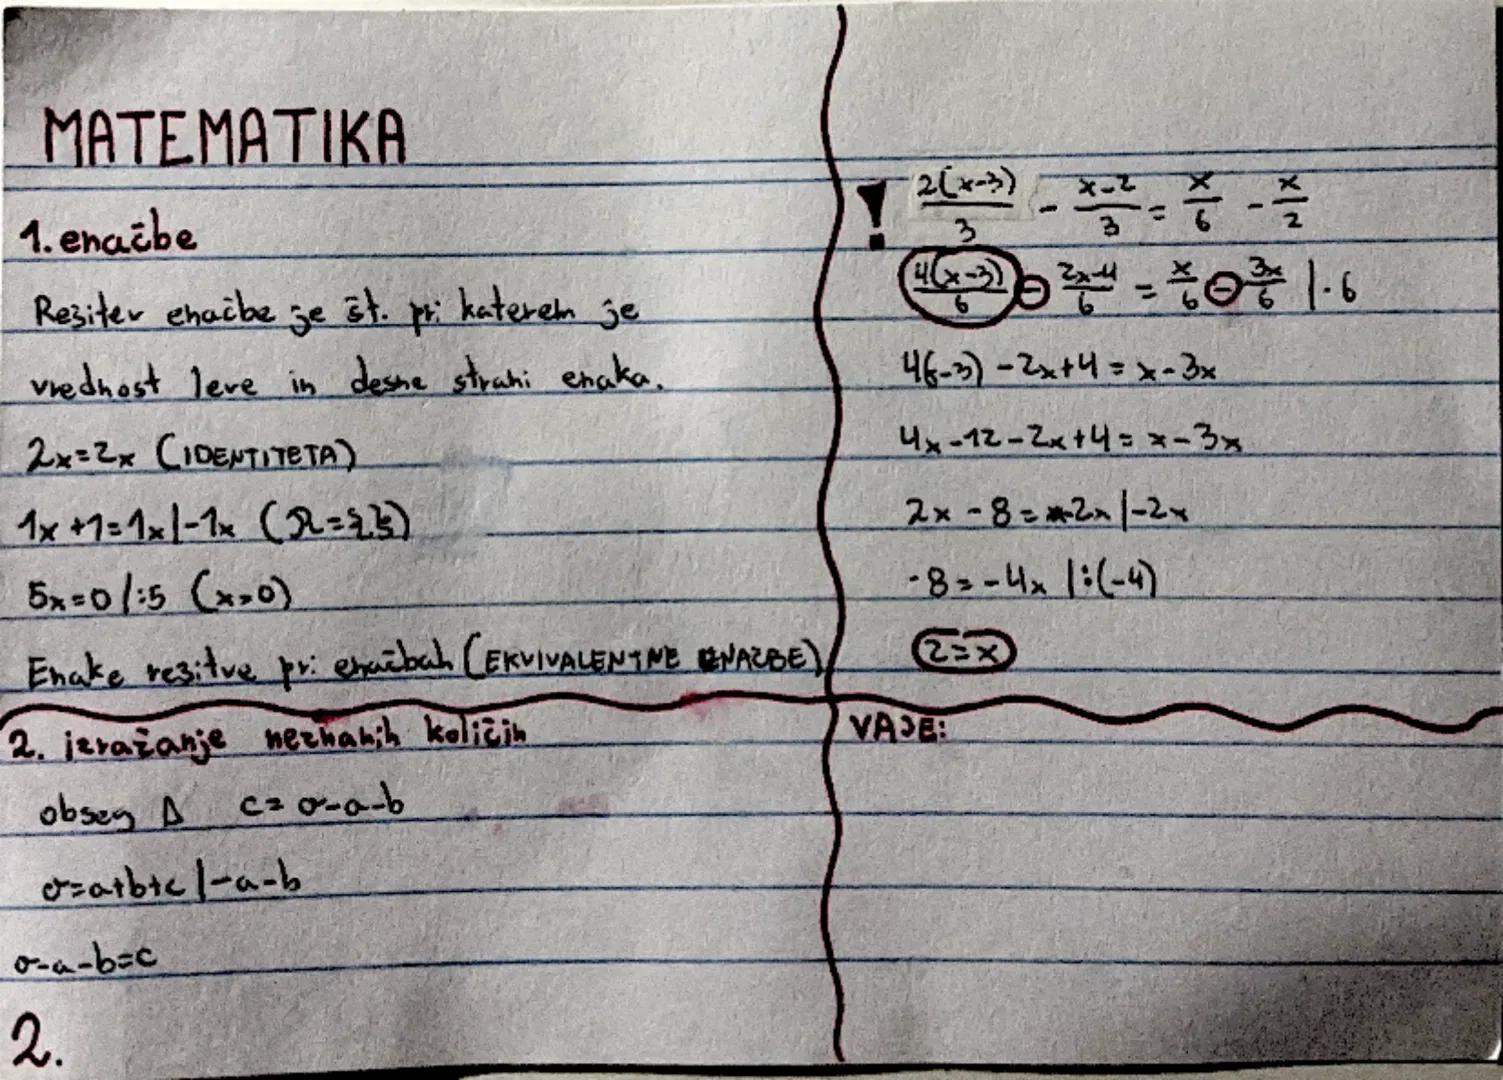 MATEMATIKA
1. enačbe
Rešitev enačbe je št. pri katerem je
vrednost leve in desne strani enaka.
2x=2x (IDENTITETA)
1x+1=1x|-1x (R={})
5x=0/:5 (x=0)
Enake rešitve pri enačbah (EKVIVALENTNE ENAČBE)
! 2(x-3)/3 - x-2/3 = x/6 - x/2
4(x-3)/6 - 2x-4/6 = x/6 - 3x/6 |·6
4(x-3) -2x+4 = x-3x
4x-12-2x+4 = x-3x
2x-8=-2x|-2x
-8=-4x |:(-4)
2=x
2. izražanje neznanih količin
obseg Δ c=o-a-b
o=a+b+c |-a-b
o-a-b=c
2.
VAJE: